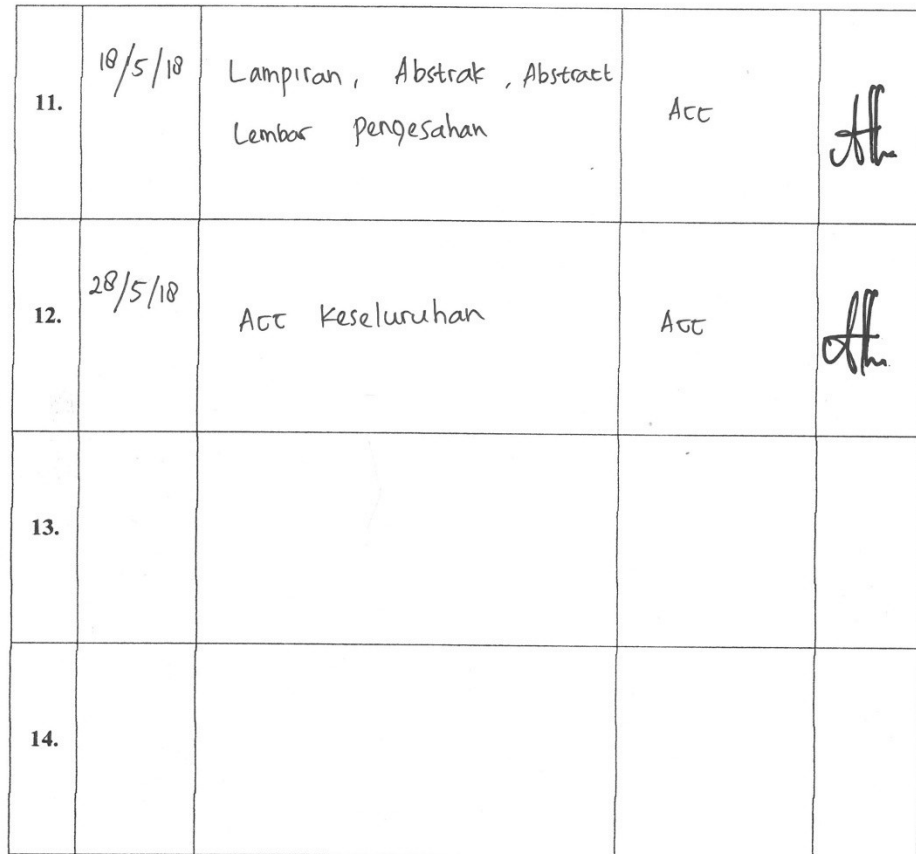 11.
18/5/18
Lampiran, Abstrak, Abstract
Lembar pengesahan
Acc
12.
28/5/18
Acc Keseluruhan
Acc
13.
14.